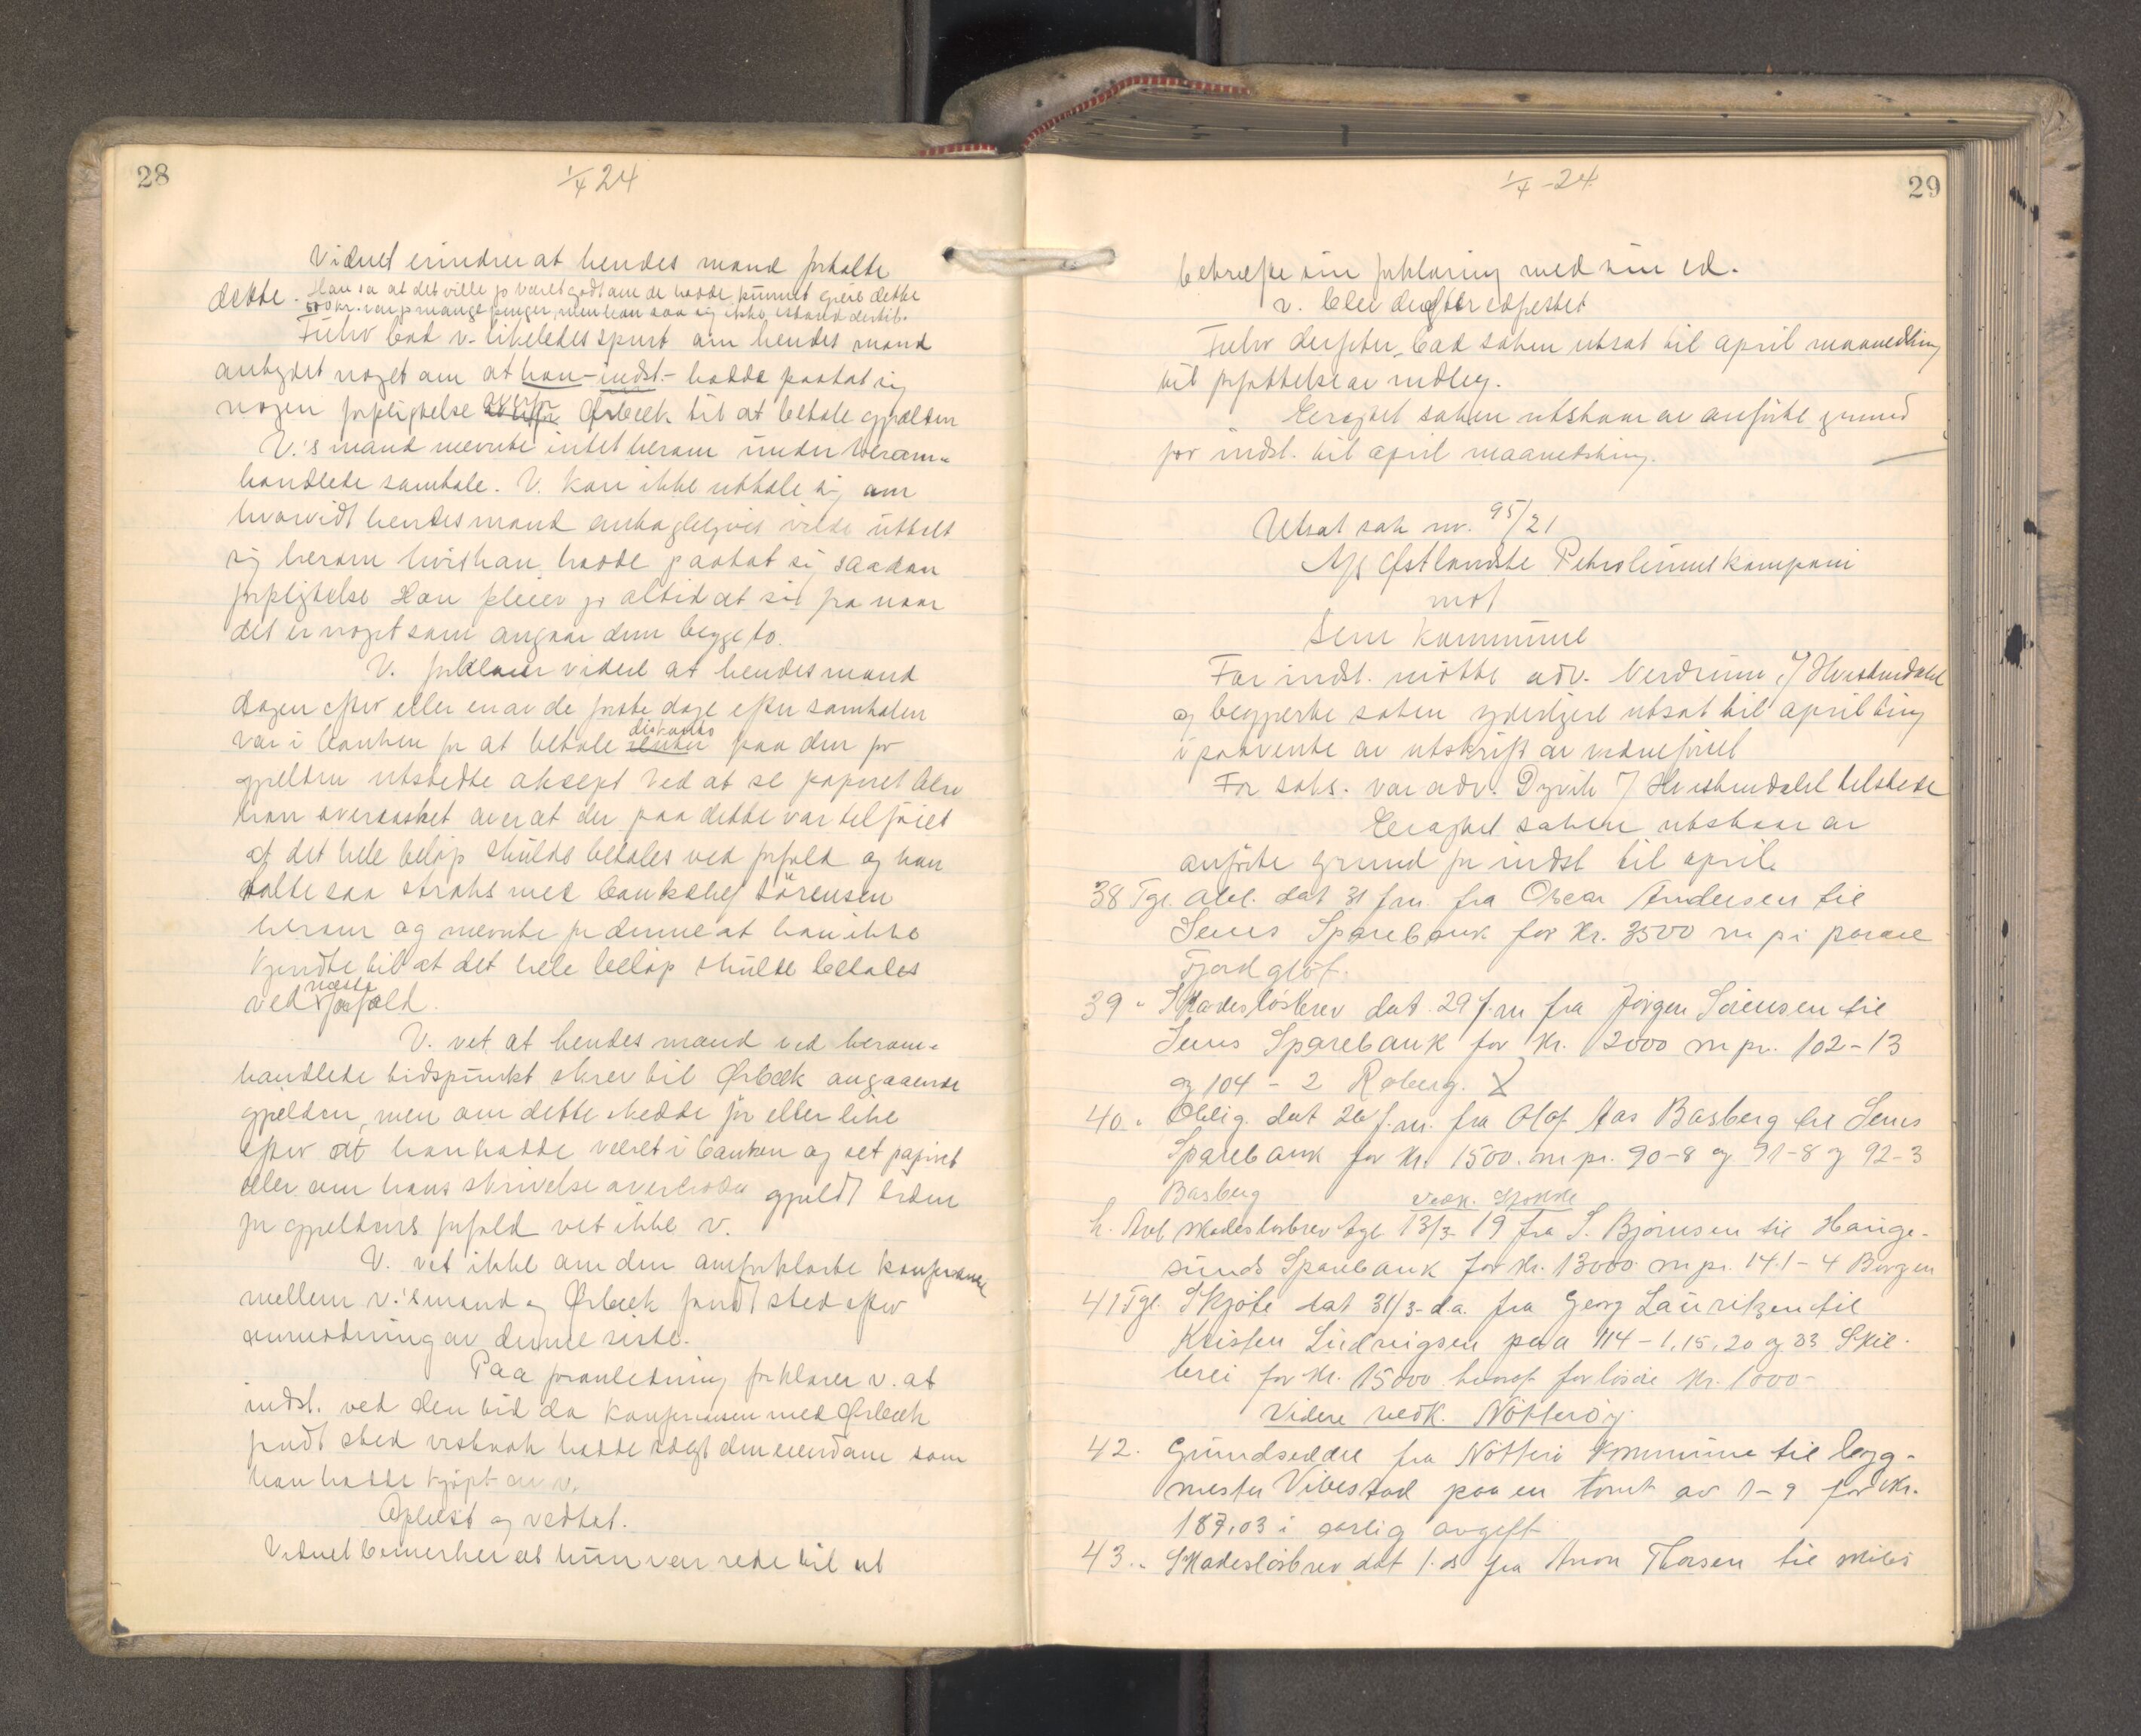 28
1/4 24
Vidnet erindrer at hendes mand fortalte
dette. Han sa at det ville jo været godt om de hadde kunnet greie dette
500 kr. var jo mange penger, men han saa sig ikke istand dertil.
Fuhr bad v. likeledes spurt om hendes mand
antydet noget om at han - indst. - hadde paatat sig
nogen forpligtelse overfor Ørbæk til at betale gjælden
V.'s mand nævnte intet herom under herom-
handlede samtale. V. kan ikke uttale sig om
hvorvidt hendes mand antagligvis vilde uttalt
sig herom hvis han hadde paatat sig saadan
forpligtelse. Han pleier jo altid at si fra naar
det er noget som angaar dem begge to.
V. forklarer videre at hendes mand
dagen efter eller en av de første dage efter samtalen
var i banken for at betale diskonto paa den for
gjælden utstedte aksept. Ved at se papiret blev
han overrasket over at der paa dette var tilføiet
at det hele beløp skulde betales ved forfald og han
talte saa straks med banksjef Sörensen
herom og nævnte for denne at han ikke
kjendte til at det hele beløp skulde betales
ved næste forfald.
V. vet at hendes mand ved herom-
handlede tidspunkt skrev til Ørbæk angaaende
gjælden, men om dette skedde før eller like
efter at han hadde været i banken og set papiret
eller om hans skrivelse overhodet gjaldt tiden
for gjældens forfald vet ikke v.
V. vet ikke om den omforklarte konferanse
mellem v.'s mand og Ørbæk fandt sted efter
anmodning av denne siste.
Paa foranledning forklarer v. at
indst. ved den tid da konferansen med Ørbæk
fandt sted vistnok hadde solgt den eiendom som
han hadde kjøpt av v.
Oplæst og vedtat.
Vidnet bemerker at hun var rede til at
29
1/4 - 24
bekræfte sin forklaring med sin ed.
v. blev derefter edfestet
Fuhr derefter bad saken utsat til april maanedsting
til forfattelse av indlæg.
Eragtet saken utstaar av anførte grund
for indst. til april maanedsting.
Utsat sak nr. 95/21
A/S Østlandske Petroleumskompani
mot
Sem kommune
For indst. møtte adv. Nerdrum v/ Hvistendahl
og begjærte saken yderligere utsat til april ting
i paavente av utskrift av vidneførsel
For saks. var adv. Dyvik v/ Hvistendahl tilstede
Eragtet saken utstaar av
anførte grund for indst til april.
38 Tgl. Obl. dat 31 f.m. fra Oscar Andersen til
Sems Sparebank for Kr. 3500 m pi parcel
Fjordgløt.
39 " Skadesløsbrev dat. 29 f.m fra Jörgen Sörensen til
Sems Sparebank for Kr. 12000 m pr. 102-13
og 104 - 2 Roberg.
40 " Oblig. dat 26 f.m. fra Olaf Aas Basberg til Sems
Sparebank for Kr. 1500. m pr. 90-8 og 91-8 og 92-3
Basberg
vedk. Stokke
h. Avl. skadesløsbrev tgl. 13/3-19 fra S. Björnsen til Hauge-
sunds Sparebank for Kr. 13000 m pr. 141-4 Borgen
41 Tgl. Skjöte dat 31/3- d.a. fra Georg Lauritzen til
Kristen Ludvigsen paa 114 - 1, 15, 20 og 33 Skil-
brei for Kr. 15000 hvorav for lösöre Kr. 1000-
Videre vedk. Nötteröy
42. Grundseddel fra Nötterö kommune til bygg-
mester Vibestad paa en tomt av 1-9 for Kr.
187,03 i aarlig avgift
43 " Skadeslösbrev dat 1. ds fra Anon Thorsen til